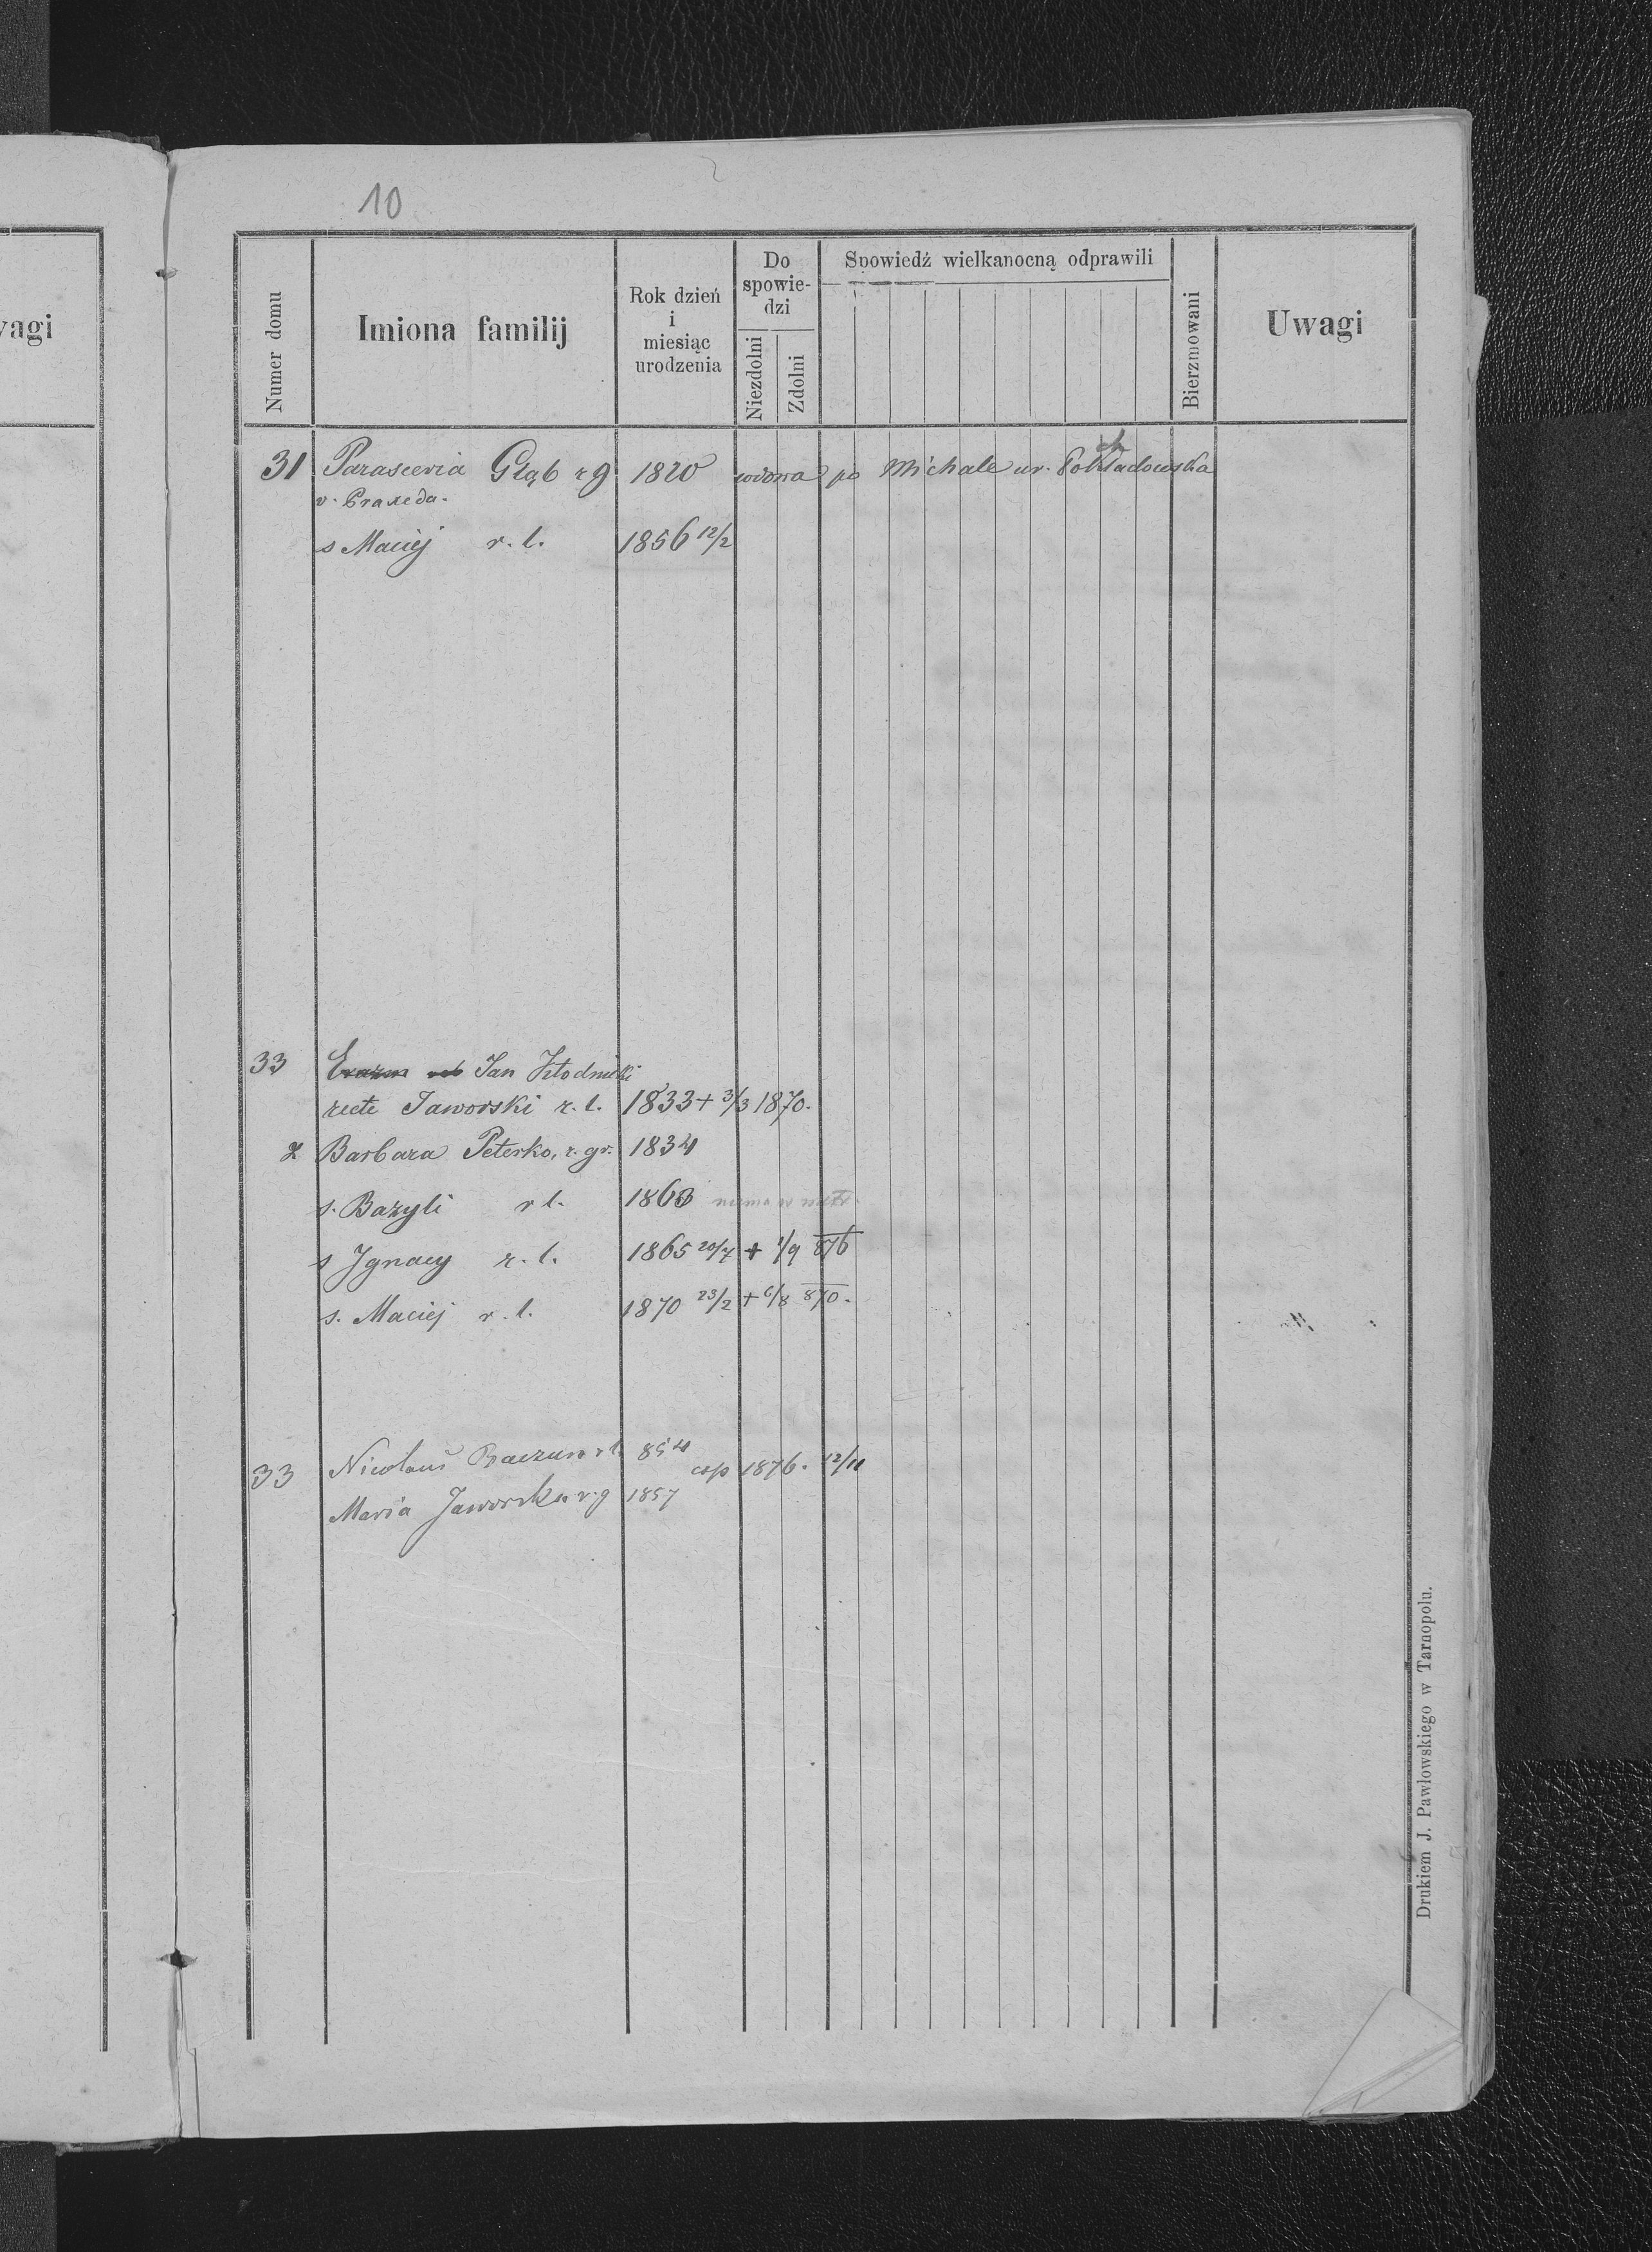 10
vagi
Numer domu
Imiona familij
Rok dzień
i
miesiąc
urodzenia
Do
spowie-
dzi
Niezdolni
Zdolni
Spowiedź wielkanocną odprawili
Bierzmowani
Uwagi
31 Parascevia Głąb r g 1820 wdowa po Michale ur.
v. Praxeda.
s Maciej r. l. 1856 12/2
33 Erazm Jan
recte Jaworski r. l. 1833 + 3/3 1870.
ż Barbara Peterko, r. gr. 1834
s. Bazyli r l. 1863 niema w metr.
s Ignacy r. l. 1865 20/7 + 1/9 876
s. Maciej r. l. 1870 23/2 + 6/8 870.
33 Nicolaus r l. 854
cop 1876. 12/11
Maria Jaworska r. g 1857
Drukiem J. Pawłowskiego w Tarnopolu.